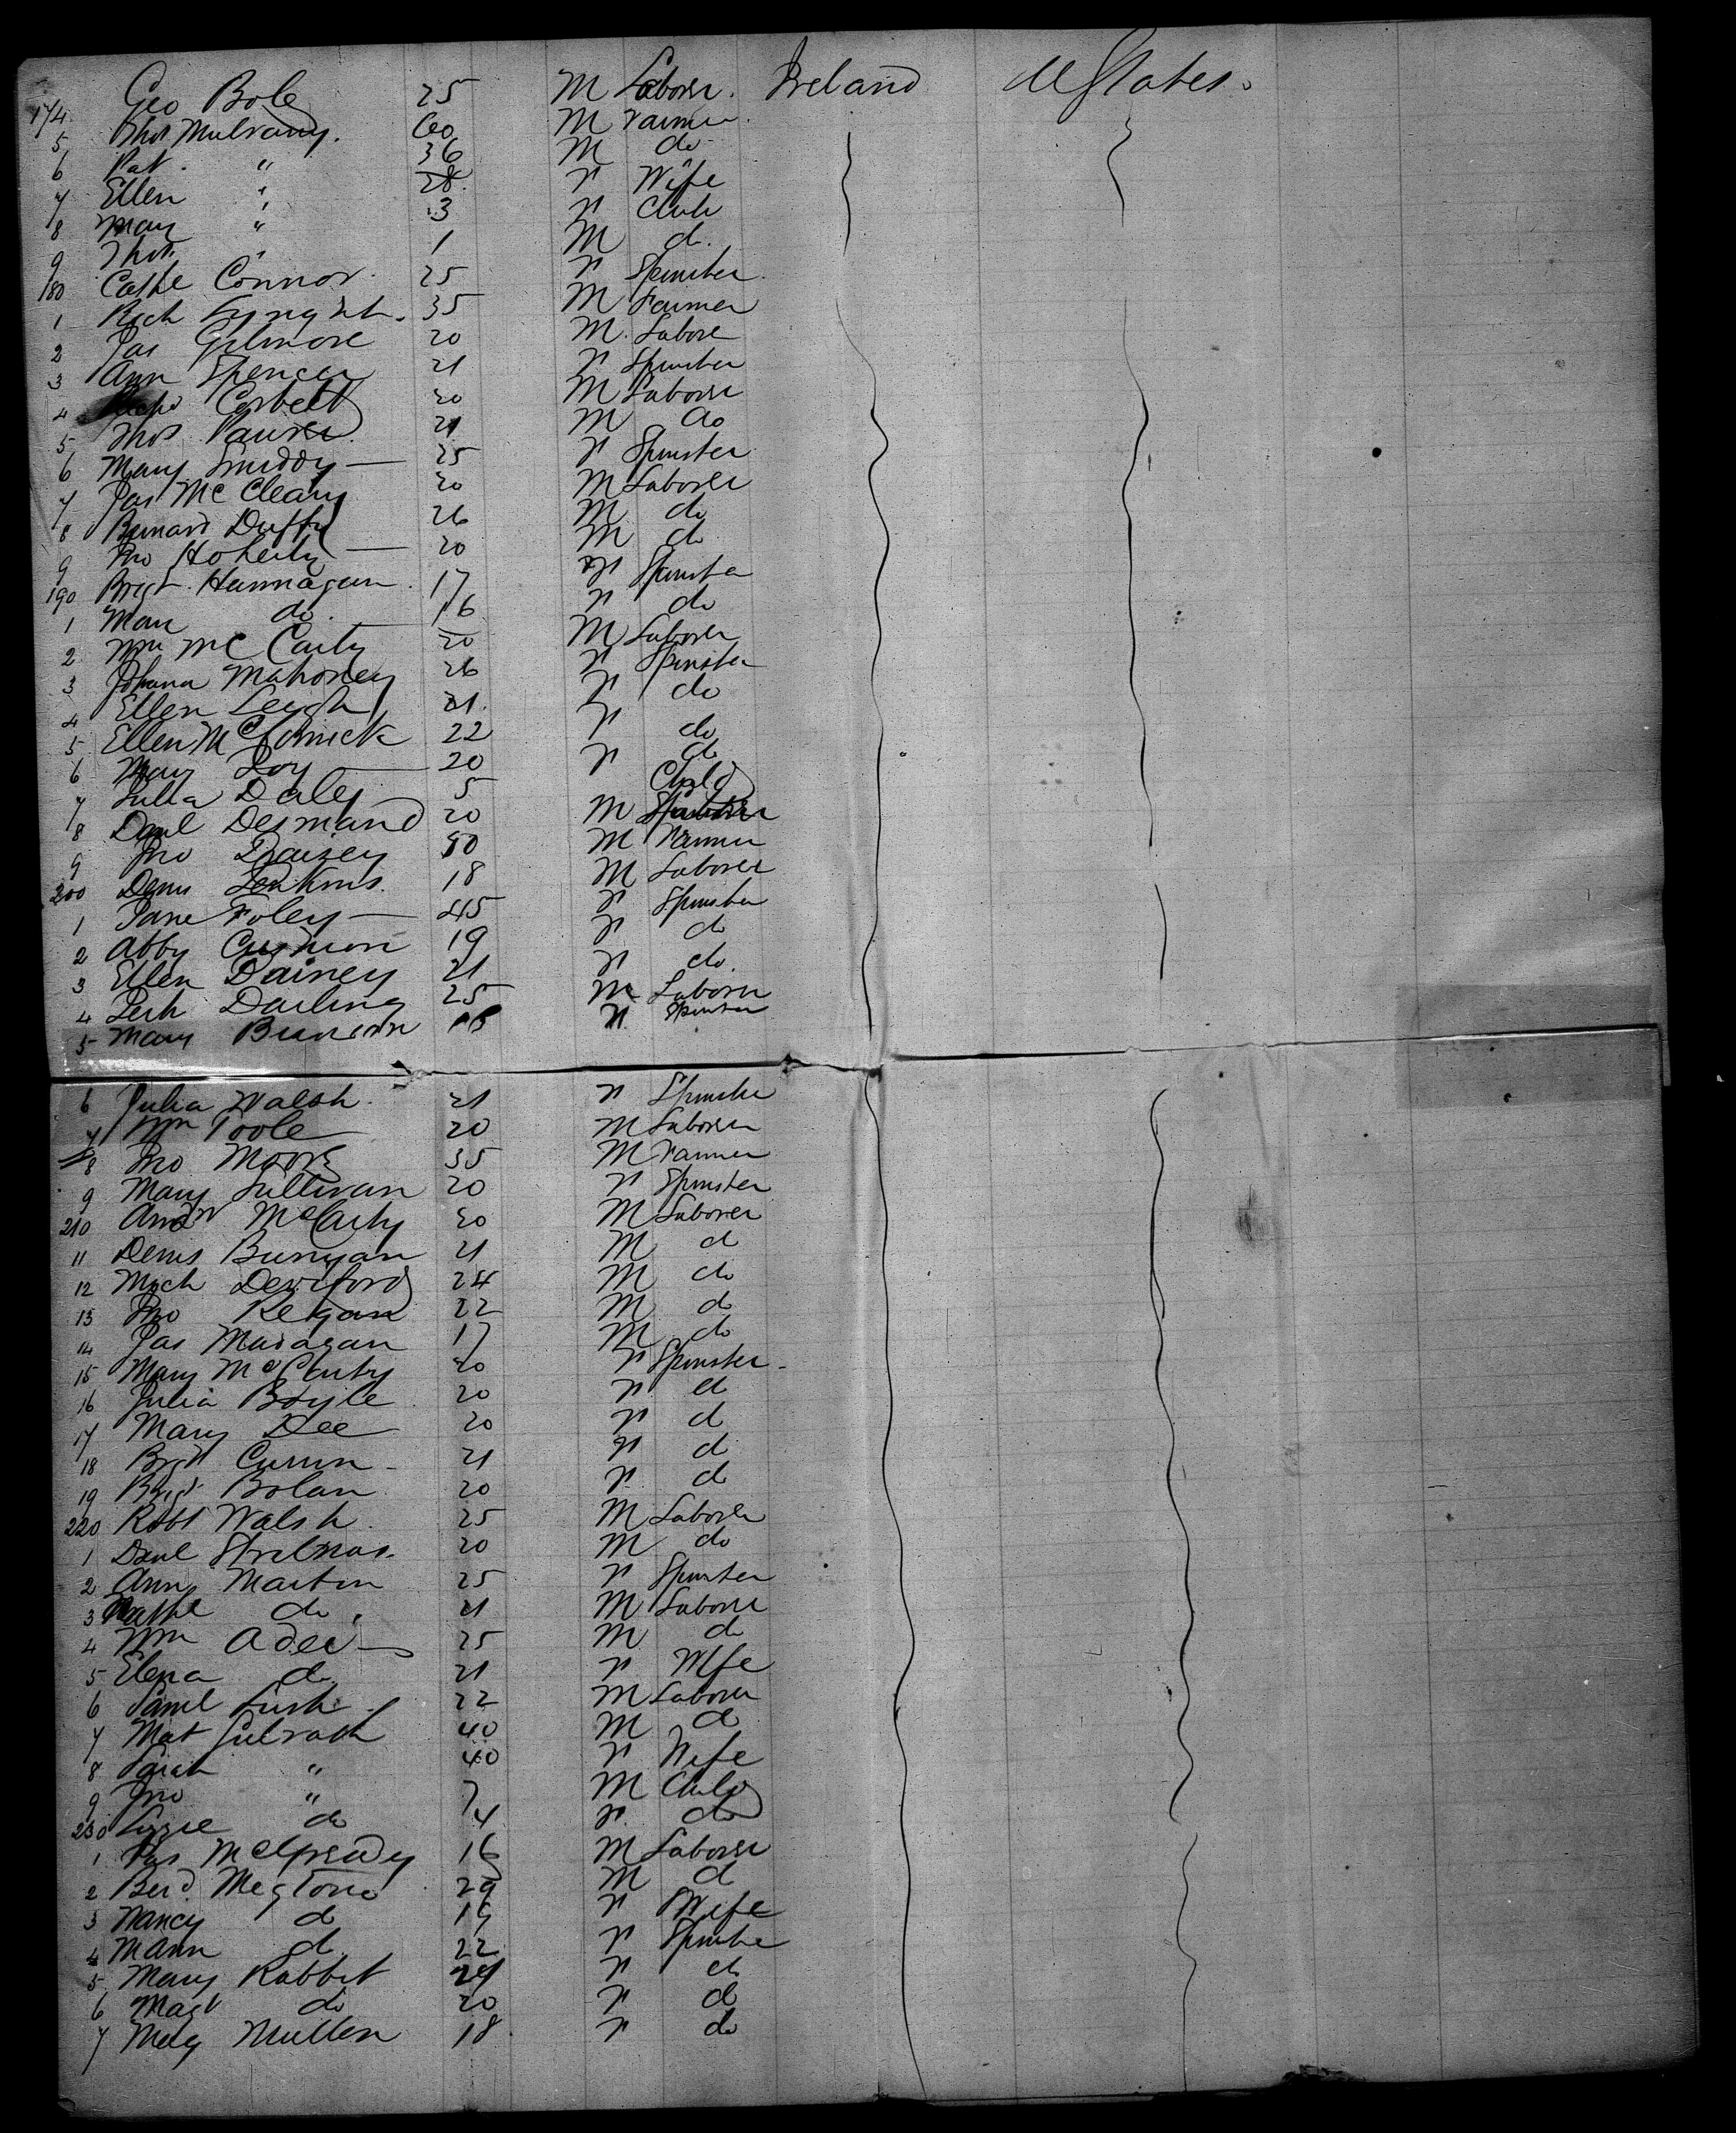 174 Geo Bole 25 M Laborer. Ireland U States.
5 Thos Mulvany. 60 M Farmer.
6 Pat " 36 M do
7 Ellen " 28 F Wife
8 Mary " 3 F Child
9 Thos " 1 M do.
180 Cathe Connor 25 F Spinster
1 Rich 35 M Farmer
2 Jas Gilmore 20 M. Labore
3 Ann Spencer 21 F Spinster
4 Corbett 20 M Laborer
5 Thos 21 M do
6 Mary Smiddy 25 F Spinster
7 Jas McCleary 20 M Laborer
8 Bernard Duffy 26 M do
9 Jno Hoherty 20 M do
190 Brigt. Hannagan 17 F Spinster
1 Mary do 16 F do
2 Wm McCarty 20 M Laborer
3 Johana Mahoney 26 F Spinster
4 Ellen Leigh 21. F do
5 Ellen McCormick 22 F do
6 Mary Loy 20 F do
7 Julia Daley 5 Child
8 Danl Desmand 20 M
9 Jno Dainey 50 M Farmer
200 Denis Jenkins. 18 M Laborer
1 Jane Foley 45 F Spinster
2 Abby Cushion 19 F do
3 Ellen Dainey 21 F do.
4 Darling 25 M Laborer
5 Mary F. Spinster
6 Julia Walsh 21 F Spinster
7 Wm Toole 20 M Laborer
8 Jno Moore 35 M Farmer
9 Mary Sullivan 20 F Spinster
210 Andw McCarty 20 M Laborer
11 Denis Bunyan 21 M do
12 Mich Deviford 24 M do
13 Jno Regan 22 M do
14 Jas Madagan 17 M do
15 Mary McCarty 20 F Spinster
16 Julia Boyle 20 F do
17 Mary Dee 20 F do
18 Brgt Curren 21 F do
19 Brigt Bolan 20 F do
220 Robt Walsh 25 M Laborer
1 Danl 20 M do
2 Ann Martin 25 F Spinster
3 do 21 M Laborer
4 Wm Adei 25 M do
5 Elena do 21 F Wife
6 Saml Lusk 22 M Laborer
7 Mat Gilrath 40 M do
8 Sarah " 40 F Wife
9 Jno " 7 M Child
230 Lizzie do 4 F. do
1 Jas McGready 16 M Laborer
2 Berd. 29 M do
3 Nancy do 19 F Wife
4 Mann do 22 F Spinster
5 Mary Rabbit 24 F do
6 Magt do 20 F do
7 Mullen 18 F do